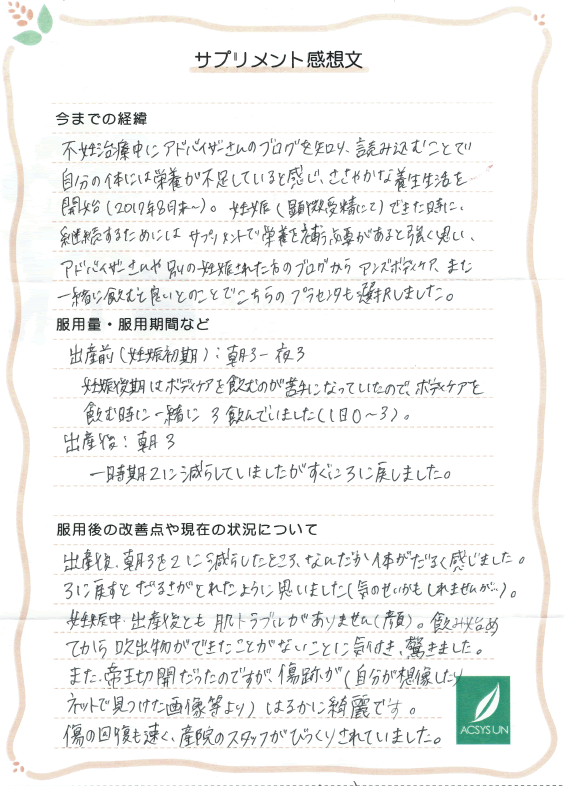 サプリメント感想文
今までの経緯
不妊治療中にアドバイザーさんのブログを知り、読み込むことで
自分の体には栄養が不足していると感じ、ささやかな養生生活を
開始(2017年8月末〜)。妊娠(顕微受精にて)できた時に、
継続するためにはサプリメントで栄養を補う必要があると強く思い、
アドバイザーさんや別の妊娠された方のブログからアンズボディケア、また
一緒に飲むと良いとのことでこちらのプラセンタも選択しました。
服用量・服用期間など
出産前(妊娠初期):朝3ー夜3
妊娠後期はボディケアを飲むのが苦手になっていたので、ボディケアを
飲む時に一緒に3飲んでいました(1日0〜3)。
出産後:朝3
一時期2に減らしていましたがすぐに3に戻しました。
服用後の改善点や現在の状況について
出産後、朝3を2に減らしたところ、なんだか体がだるく感じました。
3に戻すとだるさがとれたように思いました(気のせいかもしれませんが…)。
妊娠中・出産後とも肌トラブルがありません(顔)。飲み始め
てから吹出物ができたことがないことに気付き、驚きました。
また、帝王切開だったのですが、傷跡が(自分が想像したり
ネットで見つけた画像等より)はるかに綺麗です。
傷の回復も速く、産院のスタッフがびっくりされていました。
ACSYSUN